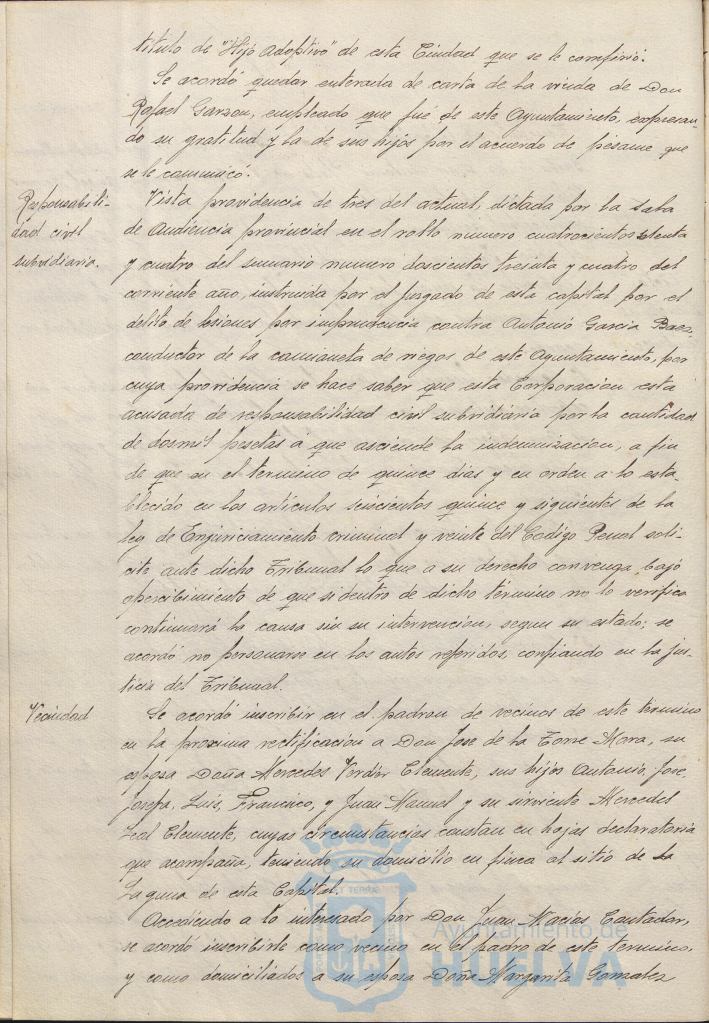 titulo de "Hijo Adoptivo" de esta Ciudad que se le confirió.
Se acordó quedar enterada de carta de la viuda de Don
Rafael Garzon, empleado que fué de este Ayuntamiento, expresan-
do su gratitud y la de sus hijos por el acuerdo de pésame que
se le comunicó.
Responsabili-
dad civil
subsidiaria.
Vista providencia de tres del actual, dictada por la sala
de Audiencia provincial en el rollo numero cuatrocientos setenta
y cuatro del sumario numero doscientos treinta y cuatro del
corriente año, instruida por el Juzgado de esta capital por el
delito de lesiones por imprudencia contra Antonio Garcia Baez,
conductor de la camioneta de riegos de este Ayuntamiento, por
cuya providencia se hace saber que esta Corporacion esta
acusada de responsabilidad civil subsidiaria por la cantidad
de dosmil pesetas a que asciende la indemnizacion, a fin
de que en el termino de quince dias y en orden a lo esta-
blecido en los articulos seiscientos quince y siguientes de la
ley de Enjuiciamiento criminal y veinte del Codigo Penal soli-
cite, ante dicho Tribunal lo que a su derecho convenga, bajo
apercibimiento de que si dentro de dicho término no lo verifica
continuará la causa sin su intervencion, segun su estado; se
acordó no personarse en los autos referidos, confiando en la jus-
ticia del Tribunal.
Vecindad
Se acordó inscribir en el padron de vecinos de este término
en la proxima rectificacion a Don Jose de la Torre Mora, su
esposa Doña Mercedes Verdier Clemente, sus hijos Antonio, Jose,
Josefa, Luis, Francisco, y Juan Manuel y su sirviente Mercedes
Leal Clemente, cuyas circunstancias constan en hojas declaratoria
que acompaña, teniendo su domicilio en finca al sitio de la
Laguna de esta Capital.
Accediendo a lo interesado por Don Juan Macias Contador,
se acordó inscribirle como vecino en el padro de este termino,
y como domiciliados a su esposa Doña Margarita Gonzalez
Ayuntamiento de
HUELVA